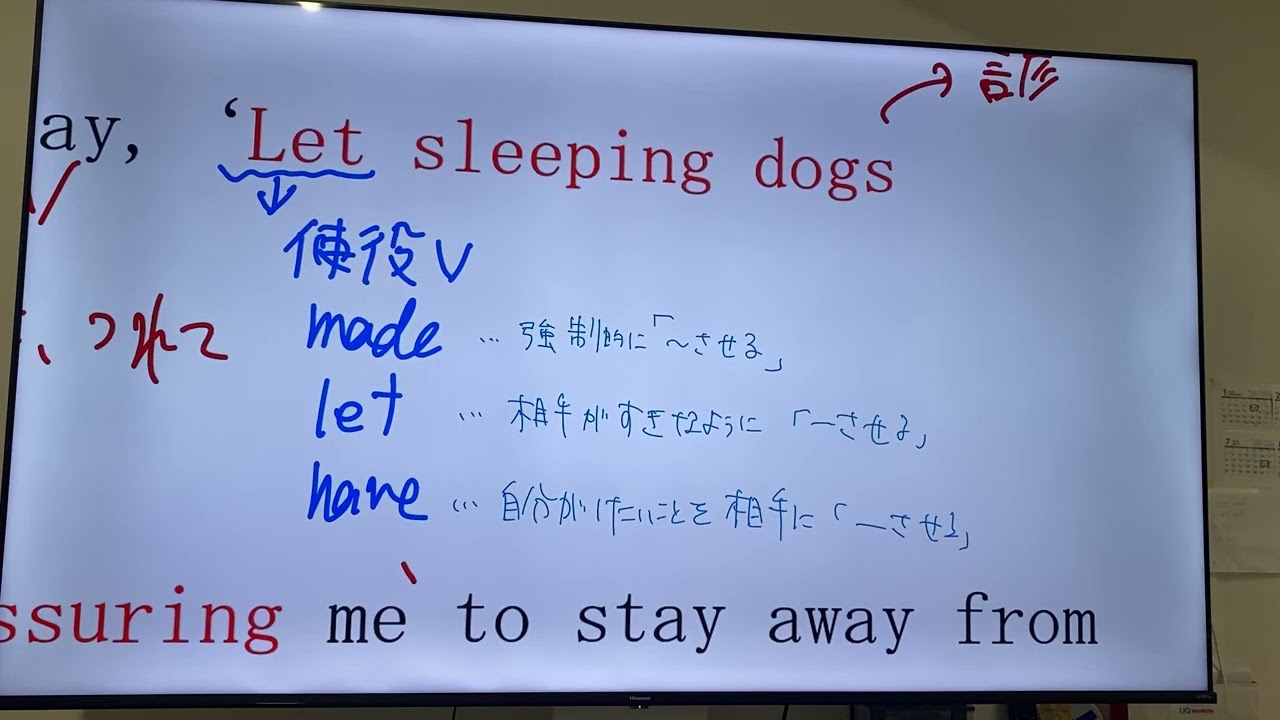 診
ay, ‘Let sleeping dogs
使役V
つれて
made … 強制的に「〜させる」
let … 相手がすきなように「―させる」
have … 自分がしたいことを相手に「―させる」
ssuring me to stay away from
Hisense
UQ mobile